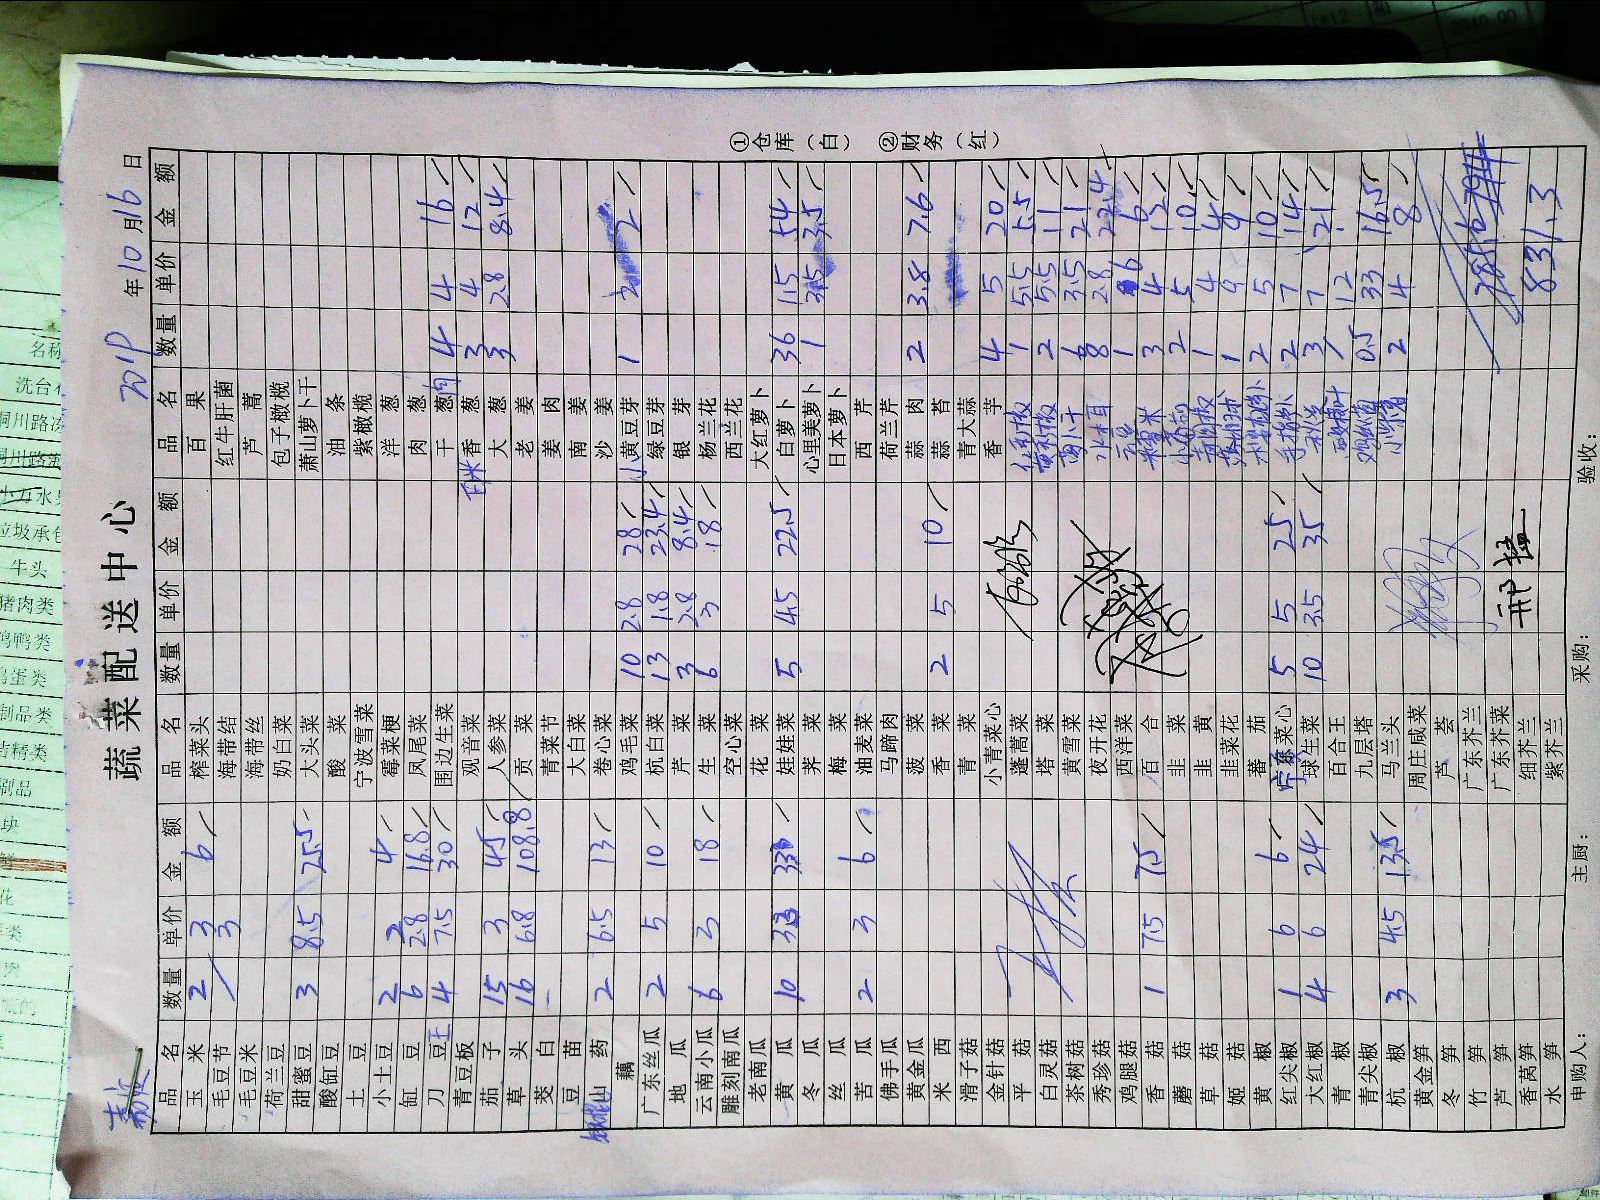 蔬菜配送中心
2019年10月16日
品名 数量 单价 金额 品名 数量 单价 金额 品名 数量 单价 金额
玉米 2 3 6 榨菜头 百果
毛豆节 3 海带结 红牛肝菌
毛豆米 海带丝 芦蒿
荷兰豆 奶白菜 包子橄榄
甜蜜豆 3 8.5 25.5 大头菜 萧山萝卜干
酸缸豆 酸菜 油条
土豆 宁波雪菜 紫橄榄
小土豆 2 2 4 霉菜梗 洋葱
缸豆 6 2.8 16.8 凤尾菜 肉葱
刀豆 4 7.5 30 围边生菜 干葱肉 4 4 16
青豆板 观音菜 香葱 3 4 12
茄子 15 3 45 人参菜 大葱 3 2.8 8.4
草头 16 6.8 108.8 贡菜 老姜
茭白 青菜节 姜肉
豆苗 大白菜 南姜
山药 2 6.5 13 卷心菜 沙姜
藕 鸡毛菜 10 2.8 28 黄豆芽 1 2 2
广东丝瓜 2 5 10 杭白菜 13 1.8 23.4 绿豆芽
地瓜 芹菜 3 2.8 8.4 银芽
云南小瓜 6 3 18 生菜 6 3 18 杨兰花
雕刻南瓜 空心菜 西兰花
老南瓜 花菜 大红萝卜
黄瓜 10 3.3 33 娃娃菜 5 4.5 22.5 白萝卜 36 1.5 54
冬瓜 荠菜 心里美萝卜 1 3.5 3.5
丝瓜 梅菜 日本萝卜
苦瓜 2 3 6 油麦菜 西芹
佛手瓜 马蹄肉 荷兰芹
黄金瓜 菠菜 蒜肉 2 3.8 7.6
米西 香菜 2 5 10 蒜苔
滑子菇 青菜 青大蒜
金针菇 小青菜心 香芋 4 5 20
平菇 蓬蒿菜 红利椒 1 5.5 5.5
白灵菇 塔菜 黄利椒 2 5.5 11
茶树菇 黄雪菜 6 3.5 21
秀珍菇 夜开花 水木耳 8 2.8 22.4
鸡腿菇 西洋菜 1 6 6
香菇 1 7.5 7.5 百合 3 4 12
蘑菇 韭菜 2 5 10
草菇 韭黄 1 4 4
姬菇 韭菜花 1 9 9
黄椒 蕃茄 2 5 10
红尖椒 1 6 6 广东菜心 5 5 25 2 7 14
大红椒 4 6 24 球生菜 10 3.5 35 3 7 21
青椒 百合王 12
青尖椒 九层塔 0.5 33 16.5
杭椒 3 4.5 13.5 马兰头 2 4 8
黄金笋 周庄咸菜
冬笋 芦荟
竹笋 广东芥兰
芦笋 广东芥菜
香莴笋 细芥兰 831.3
水笋 紫芥兰
申购人： 主厨： 采购： 验收：
①仓库（白） ②财务（红）
名称
洗台
牛头
猪肉类
鸡鸭类
鸡蛋类
制品类